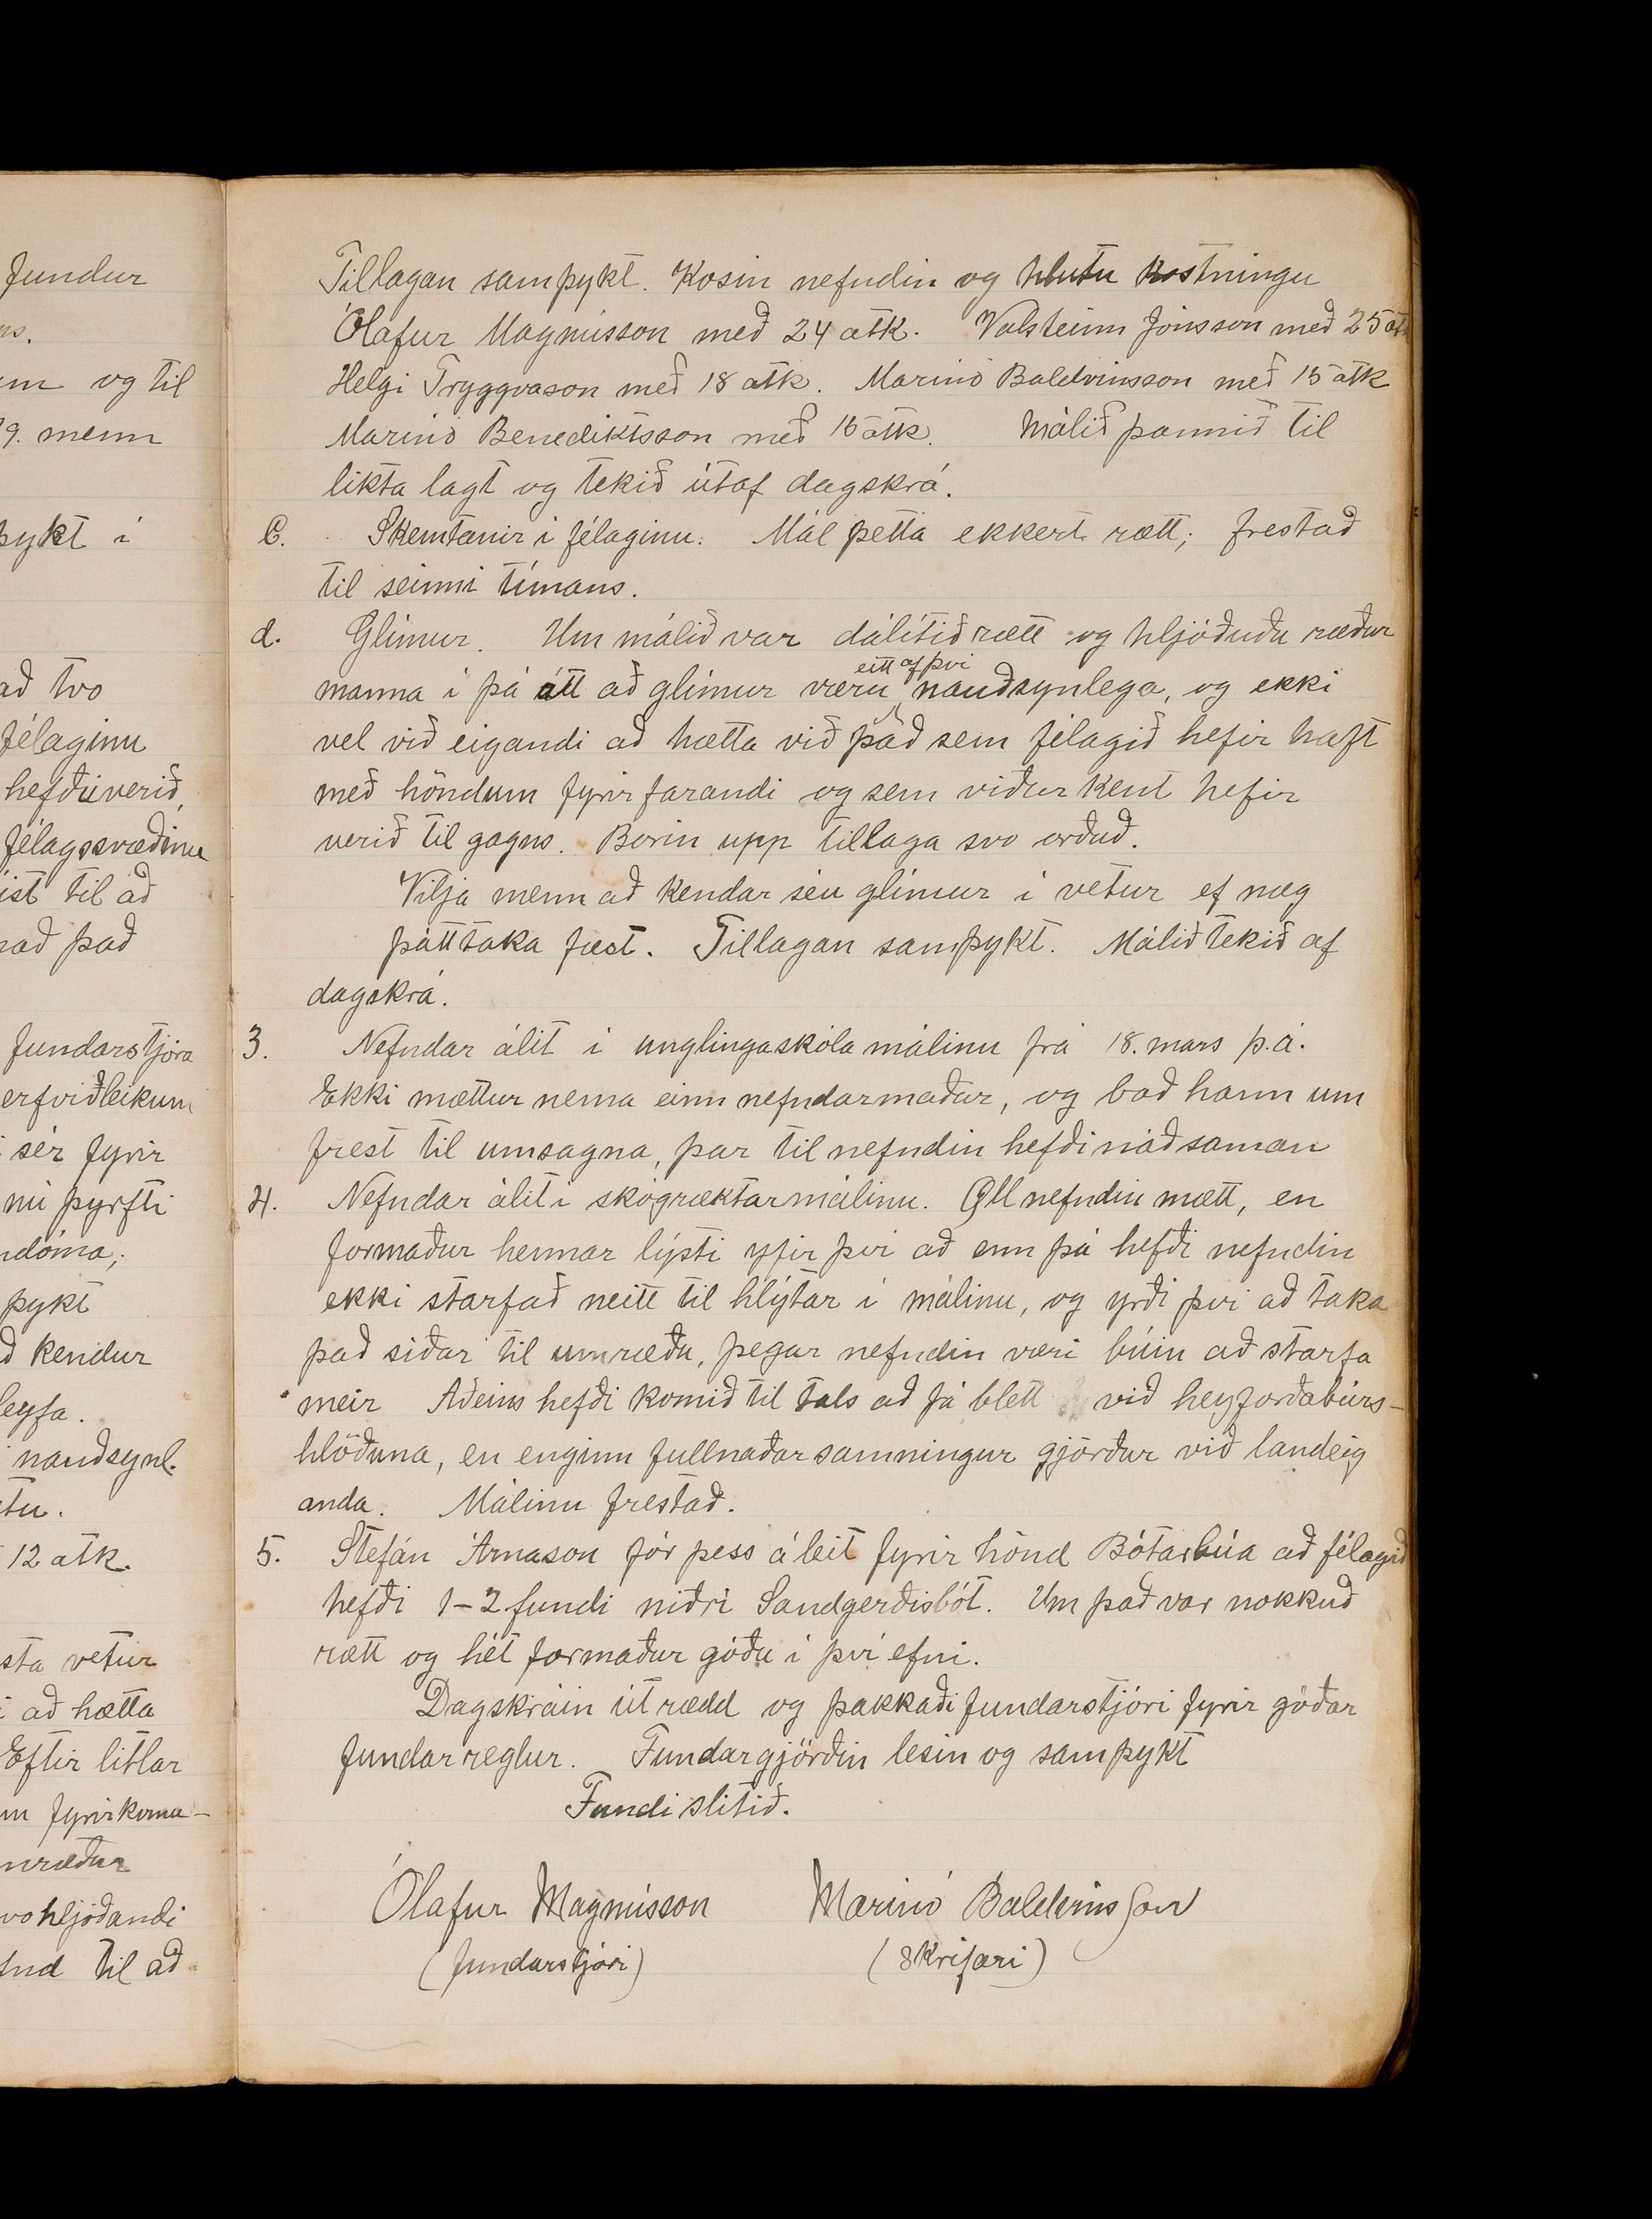 fundur
ns.
um og til
19. menn
þykt í
að tvo
félaginu
hefði verið,
félagssvæðinu
ist til að
það
fundarstjóra
erfviðleikum
sér fyrir
nú þyrfti
ndóma;
þykt
ð kendur
leyfa.
nauðsynl.
tu.
12 atk.
sta vetur
að hætta
Eftir litlar
m fyrirkomu-
mræður
vohljóðandi
fnd til að
Tillagan samþykt. Kosin nefndin og hlutu kostningu
Ólafur Magnússon með 24 atk. Valsteinn Jónsson með 25 atk
Helgi Tryggvason með 18 atk. Marinó Baldvinsson með 15 atk
Marinó Benediktsson með 15 atk. Málið þannið til
likta lagt og tekið útaf dagskrá.
C. Skemtanir í félaginu. Mál þetta ekkert rætt; frestað
til seinni tímans.
d. Glímur. Um málið var dálítið rætt og hljóðuðu ræður
manna í þá átt að glímur væru eitt af því nauðsynlega, og ekki
vel við eigandi að hætta við það sem félagið hefir haft
með höndum fyrirfarandi og sem viðurkent hefir
verið til gagns. Borin upp tillaga svo orðuð.
Vilja menn að kendar séu glímur í vetur ef næg
þátttaka fæst. Tillagan samþykt. Málið tekið af
dagskrá.
3. Nefndar álit í unglingaskóla málinu frá 18. mars þ.á.
Ekki mættur nema einn nefndarmaður, og bað hann um
frest til umsagna, þar til nefndin hefði náð saman
4. Nefndar álit í skógræktarmálinu. Öll nefndin mætt, en
formaður hennar lýsti yfir því að enn þá hefði nefndin
ekki starfað neitt til hlýtar í málinu, og yrði því að taka
það síðar til umræðu, þegar nefndin væri búin að starfa
meir Aðeins hefði komið til tals að fá blett við heyforðabúrs-
hlöðuna, en enginn fullnaðarsamningur gjörður við landeig
anda. Málinu frestað.
5. Stefán Árnason fór þess á leit fyrir hönd Bótarbúa að félagið
hefði 1-2 fundi niðri Sandgerðisbót. Um það var nokkuð
rætt og hét formaður góðu í því efni.
Dagskráin útrædd og þakkaði fundarstjóri fyrir góðar
fundarreglur. Fundargjörðin lesin og samþykt
Fundi slitið.
Ólafur Magnússon Marinó Baldvinsson
(fundarstjóri) (skrifari)